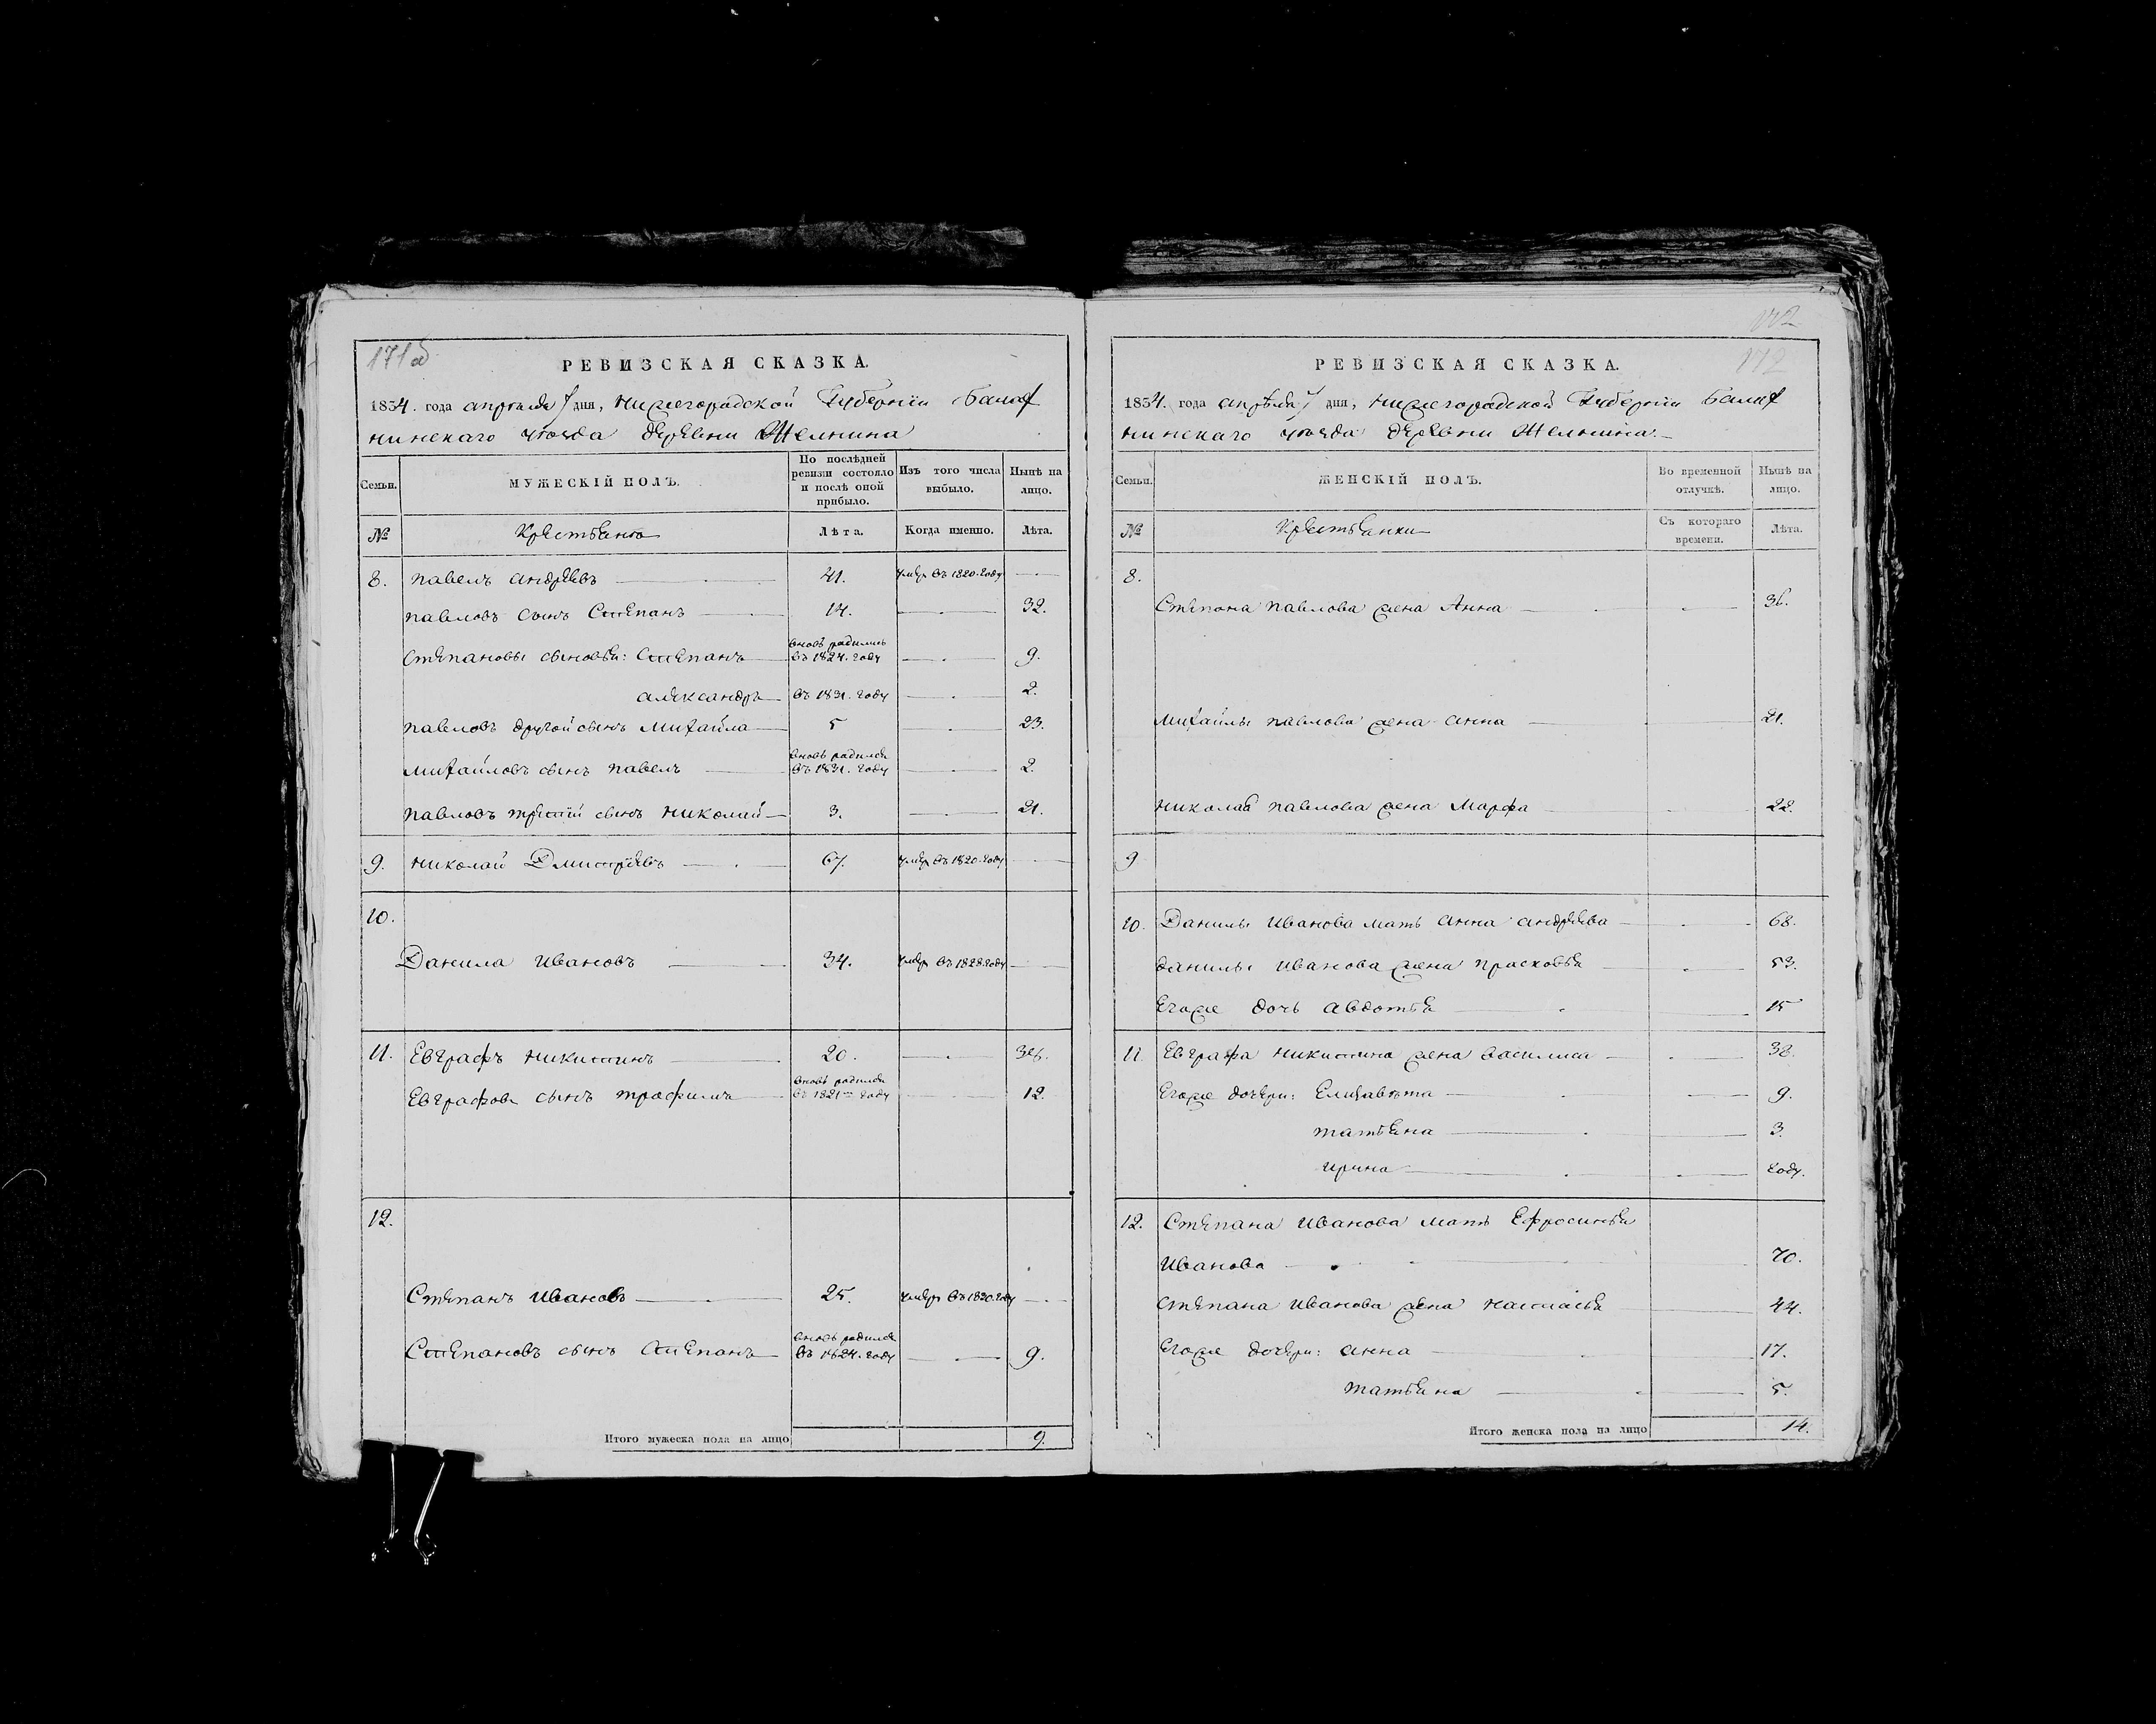 171об
РЕВИЗСКАЯ СКАЗКА.
1834. года апрѣля дня, Нижегородской Губерніи Балах
нинскаго уѣзда деревни Желнина
Семьи.
МУЖЕСКІЙ ПОЛЪ.
По послѣдней
ревизіи состояло
и послѣ оной
прибыло.
Изъ того числа
выбыло.
Нынѣ на
лицо.
№
Крестьяне
Лѣта.
Когда именно.
Лѣта.
8. Павелъ Андреевъ 41. умеръ въ 1820. году
Павловъ сынъ Степанъ 14. 32.
вновь родились
Степановы сыновья: Степанъ въ 1824. году 9.
Александръ въ 1831. году 2.
Павловъ другой сынъ Михайла 5 23.
вновь родился
Михайловъ сынъ Павелъ въ 1831. году 2.
Павловъ третій сынъ Николай 3. 21.
9. Николай Дмитріевъ 67. умеръ въ 1820. году
10.
Данила Ивановъ 34. умеръ въ 1828. году
11. Евграфъ Никитинъ 20. 38.
вновь родился
Евграфовъ сынъ Трофимъ въ 1821 году 12.
12.
Степанъ Ивановъ 25. умеръ въ 1830. году
вновь родился
Степановъ сынъ Степанъ въ 1824. году 9.
Итого мужеска пола на лицо 9.
172
172
РЕВИЗСКАЯ СКАЗКА.
1834. года апрѣля дня, Нижегородской Губерніи Балах
нинскаго уѣзда деревни Желнина
Семьи.
ЖЕНСКІЙ ПОЛЪ.
Во временной
отлучкѣ.
Нынѣ на
лицо.
№
Крестьянки
Съ котораго
времени.
Лѣта.
8.
Степана Павлова жена Анна 36.
Михайлы Павлова жена Анна 21.
Николая Павлова жена Марфа 22.
9
10. Данилы Иванова мать Анна Андреева 68.
Данилы Иванова жена Прасковья 53.
Егоже дочь Авдотья 15
11 Евграфа Никитина жена Василиса 38.
Егоже дочери: Елизавета 9.
Татьяна 3.
Ирина году.
12. Степана Иванова мать Ефросинья
Иванова 70.
Степана Иванова жена Настасья 44.
Егоже дочери: Анна 17.
Татьяна 5.
Итого женска пола на лицо 14.